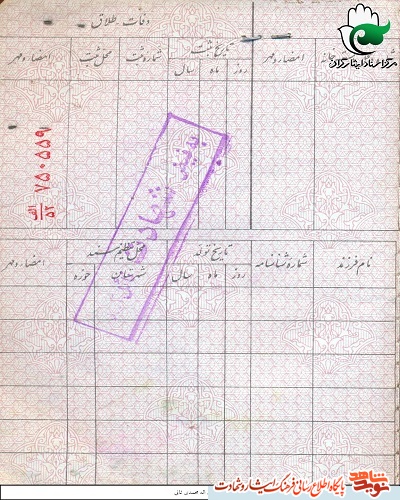 وفات - طلاق
مرکز اسناد ایثارگران
خانه
امضاء و مهر
تاریخ ثبت
روز ماه سال
شماره ثبت
محل ثبت
امضاء و مهر
۷۵۰۵۵۹
الف
۵۲
شهادت
نام فرزند
شماره شناسنامه
تاریخ تولد
روز ماه سال
محل تنظیم سند
شهرستان حوزه
امضاء و مهر
نوید شاهد
پایگاه اطلاع رسانی فرهنگ ایثار و شهادت